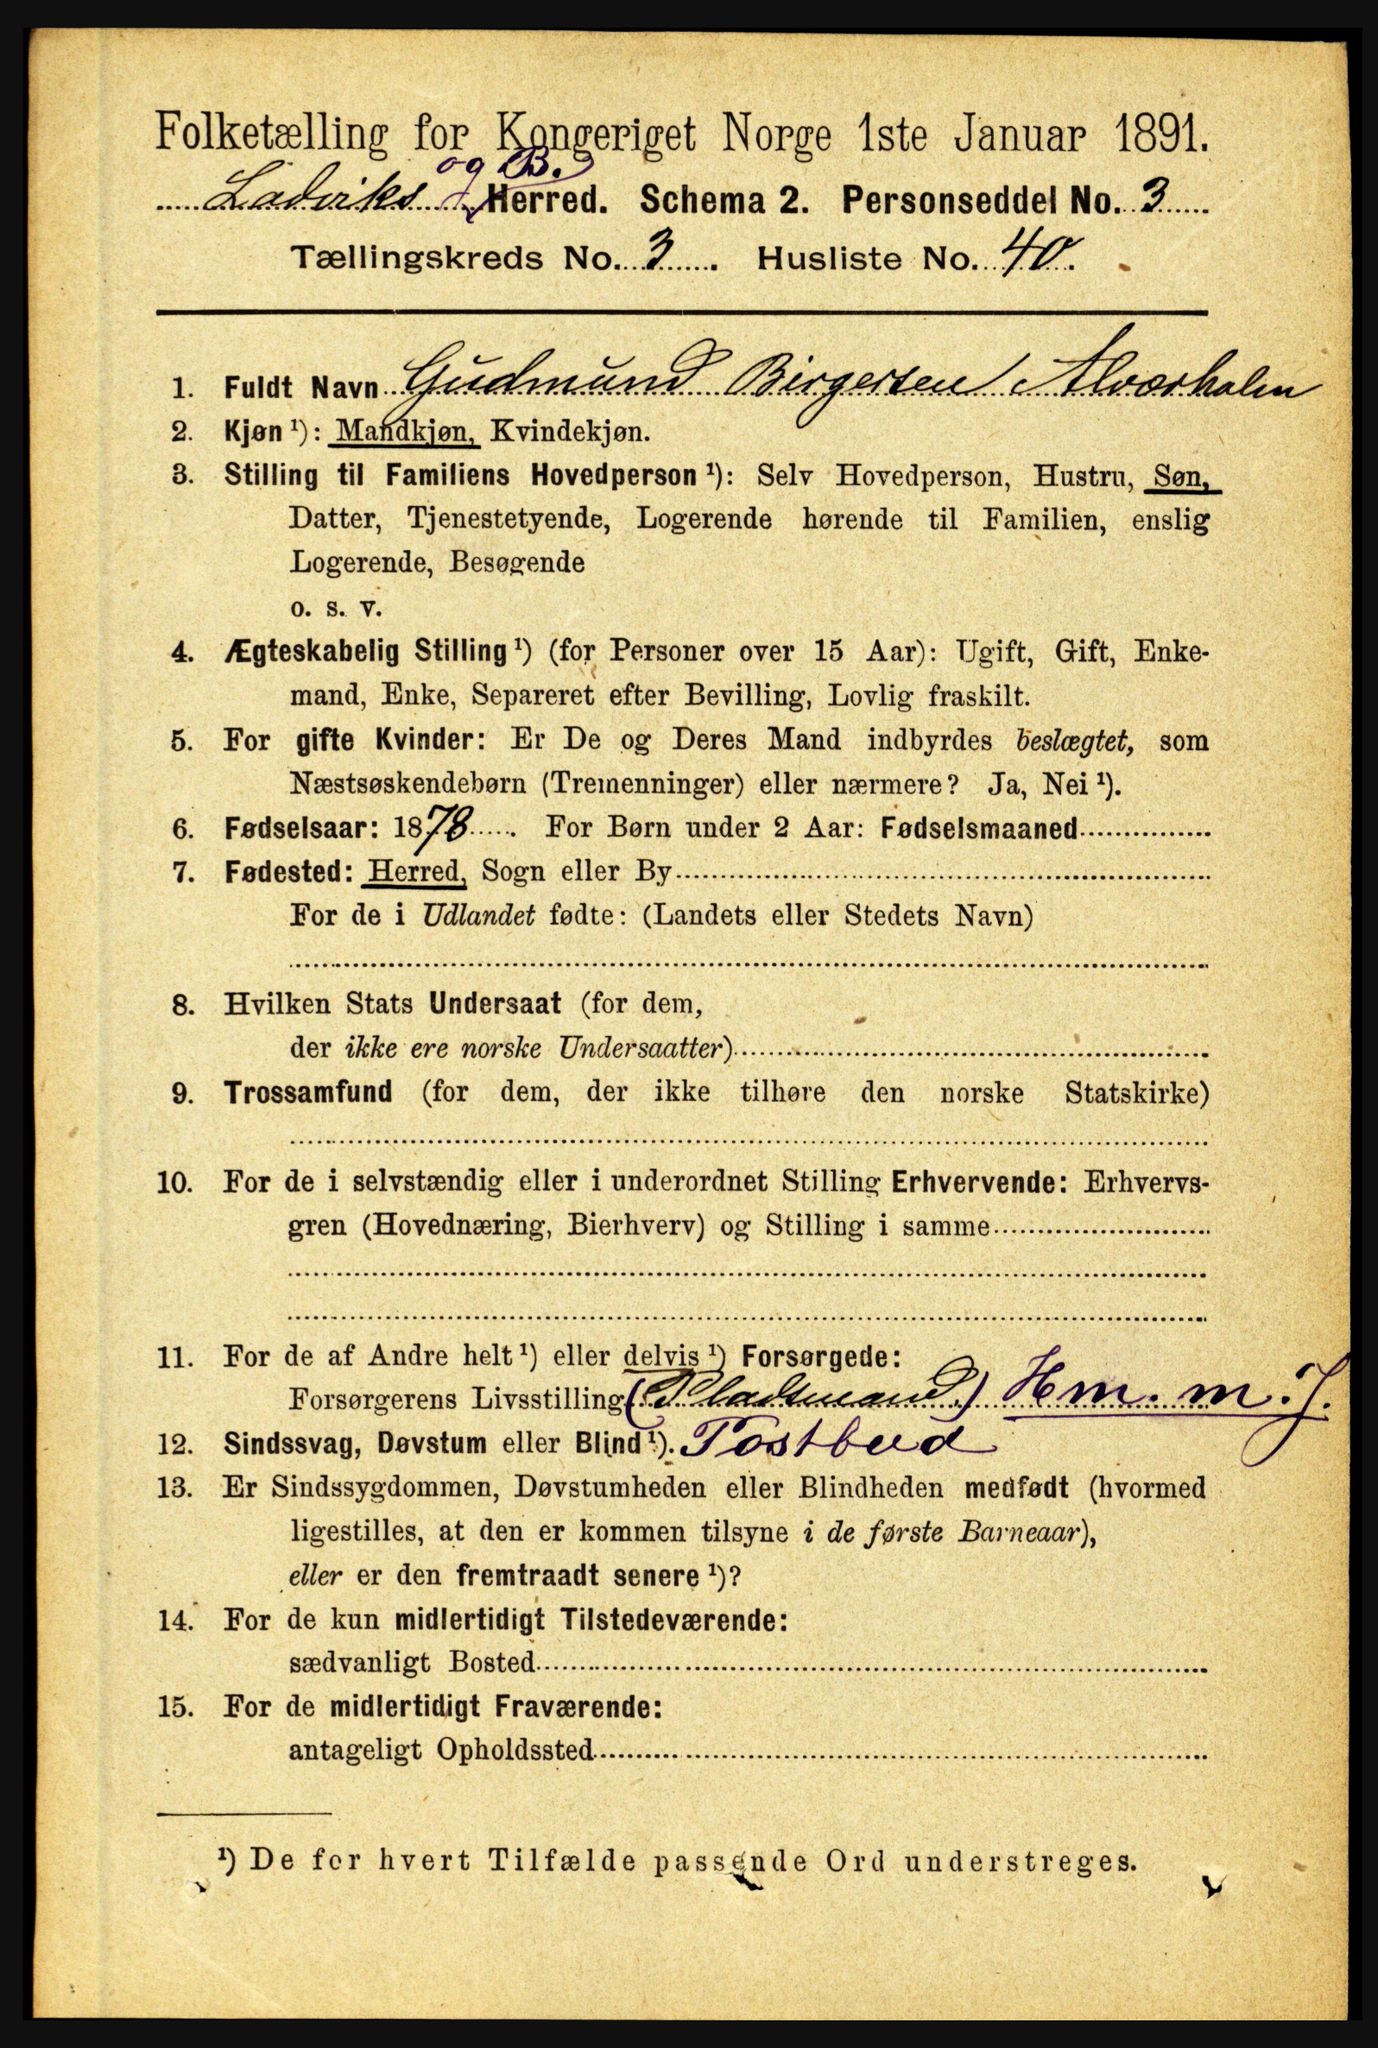 Folketælling for Kongeriget Norge 1ste Januar 1891.
og B.
Ladviks Herred. Schema 2. Personseddel No. 3
Tællingskreds No. 3. Husliste No. 40.
1. Fuldt Navn Gudmund Birgersen Alværholm
2. Kjøn ¹): Mandkjøn, Kvindekjøn.
3. Stilling til Familiens Hovedperson ¹): Selv Hovedperson, Hustru, Søn,
Datter, Tjenestetyende, Logerende hørende til Familien, enslig
Logerende, Besøgende
o. s. v.
4. Ægteskabelig Stilling ¹) (for Personer over 15 Aar): Ugift, Gift, Enke-
mand, Enke, Separeret efter Bevilling, Lovlig fraskilt.
5. For gifte Kvinder: Er De og Deres Mand indbyrdes beslægtet, som
Næstsøskendebørn (Tremenninger) eller nærmere? Ja, Nei ¹).
6. Fødselsaar: 1878. For Børn under 2 Aar: Fødselsmaaned
7. Fødested: Herred, Sogn eller By
For de i Udlandet fødte: (Landets eller Stedets Navn)
8. Hvilken Stats Undersaat (for dem,
der ikke ere norske Undersaatter)
9. Trossamfund (for dem, der ikke tilhøre den norske Statskirke)
10. For de i selvstændig eller i underordnet Stilling Erhvervende: Erhvervs-
gren (Hovednæring, Bierhverv) og Stilling i samme
11. For de af Andre helt ¹) eller delvis ¹) Forsørgede:
Forsørgerens Livsstilling (Pladsmand) Hm. m. J.
12. Sindssvag, Døvstum eller Blind ¹). Postbud
13. Er Sindssygdommen, Døvstumheden eller Blindheden medfødt (hvormed
ligestilles, at den er kommen tilsyne i de første Barneaar),
eller er den fremtraadt senere ¹)?
14. For de kun midlertidigt Tilstedeværende:
sædvanligt Bosted
15. For de midlertidigt Fraværende:
antageligt Opholdssted
¹) De for hvert Tilfælde passende Ord understreges.